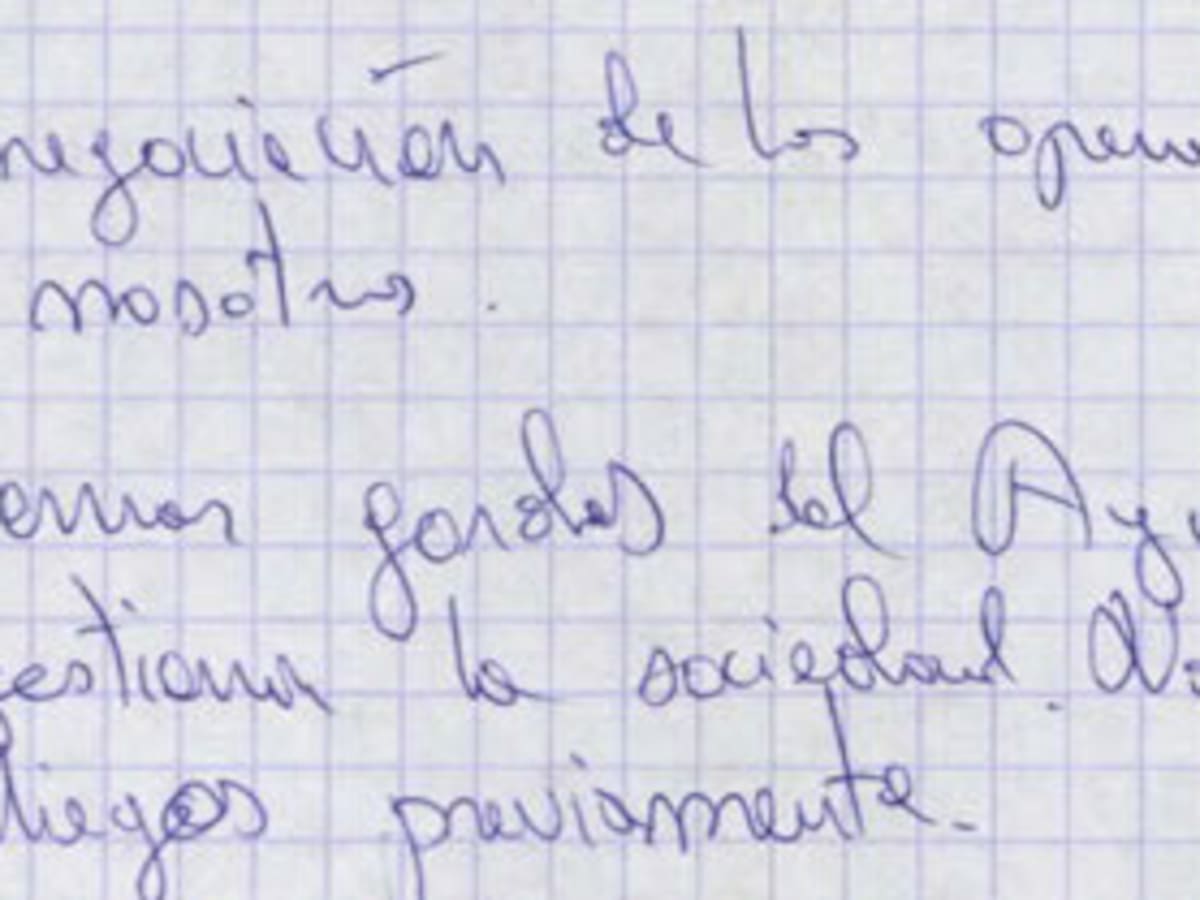 negociación de los opera
nosotros.
emos fondos del Ayu
estionar la sociedad. No
liegos previamente.